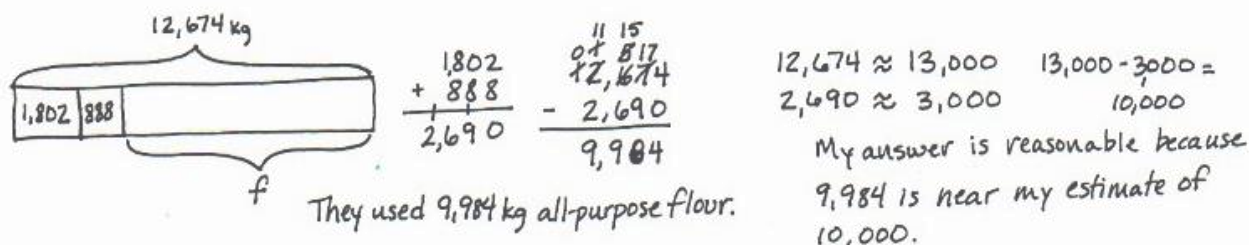 12,674 kg
1,802 888
f
1,802
+ 888
2,690
11 15
0 1 5 17
12,674
- 2,690
9,984
They used 9,984 kg all-purpose flour.
12,674 ≈ 13,000 13,000 - 3,000 =
2,690 ≈ 3,000 10,000
My answer is reasonable because
9,984 is near my estimate of
10,000.